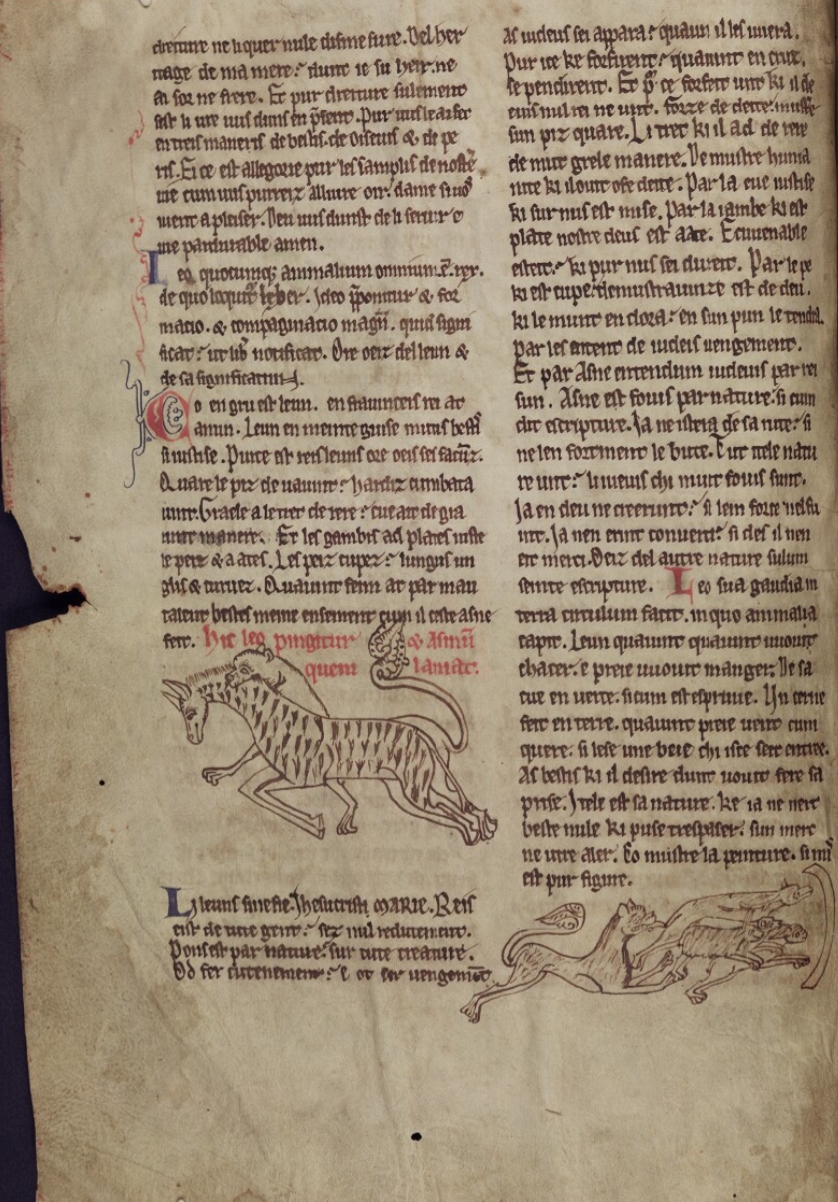 dreiture ne li quer nule disme sure. Del her
itage de ma mere: dunt ie su heir. ne
ai sor ne frere. Et pur dreiture sulement
en treis maneris de bestis. de oiseus & de pe
ris. E ce est allegorie pur les samplis de nostre
uie cum uus purreiz alluire oir. dame si uus
uient a pleiser. Deu uus dunst de li seruir e
uie pardurable amen.
Leo quocumq; animalium omnium ē. rex.
de quo loquit' liber. Ideo p̄ponitur & for
matio. & compaginacio magn̄. quid signi
ficat: ut lib' notificat. Ore oez del leun &
de sa significatiun.
Co en griu est leun. en fraunceis rei at
a nun. Leun en meinte guise mutis bestis
si iustise. Purce est reis leuns ore oeis ses
Quare le piz de uaunt: hardiz cumbata
iunt. Graele a le trer de rere: cue ait de gra
unt maniere. Et les gambis ad plates iuste
le peiz & aates. Les peiz cupez: lungus un
glis & curuez. Quaunt feim at par mau
talent bestes meine ensement cum il ceste asne
feit. Hic leo pingitur & Asinū
quem laniat.
Li leuns sinefie. Ihesucrist MARIE. Reis
eist de tute gent: sez nul redutement.
Ponsest par nature. sur tute creature.
Od fer cutenement: e ot ser uengemēt
As iudeus sei apparat: quaun il les iuiera.
Pur ice ke forfirent: quaunt en cruz.
le pendirent. Et p' ce forfeit unt ki il de
eius nul rei ne unt. forze de deite: mustre
sun piz quare. Li trer ki il ad de rere
de mut grele manere. Demustre huma
nite ki il out ofe deite. Par la cue iustise
ki sur nus est mise. Par la iambe ki est
plate nostre deus est aate. E cuuenable
esteit: ki pur nus sei dureit. Par le pe
ki est cupe: demustraunze est de deu.
ki le munt en cloza: en sun pun le tendra.
Par les entent de iudeis uengement.
Et par Asne entendum iudeius par rei
sun. Asne est fouis par nature: si cum
dit escripture. Ja ne istera de sa rute: si
ne len fortment le bute. Tut itele natu
re unt: li iueuis chi mut fouis sunt.
Ja en deu ne creerunt: si lem force nel fu
nt. Ja nen erint conuerti: si des il nen
eit merci. Oeiz del autre nature sulum
seinte escripture. Leo sua gaudia in
terra circulum facit. in quo animalia
capit. Leun quaunt quaunt uuout
chacer. e preie uuout manger. De sa
cue en uerte. si cum est espruue. Un cerne
feit en terre. quaunt preie ueut cum
quere. si lese une beie chi iste seit entree.
As bestis ki il desire dunt uout fere sa
prise. Itele est sa nature. ke ia ne nert
beste nule ki puse trespaser. sun merc
ne utre aler. Eo mustre la peinture. si mi
est pur figure.